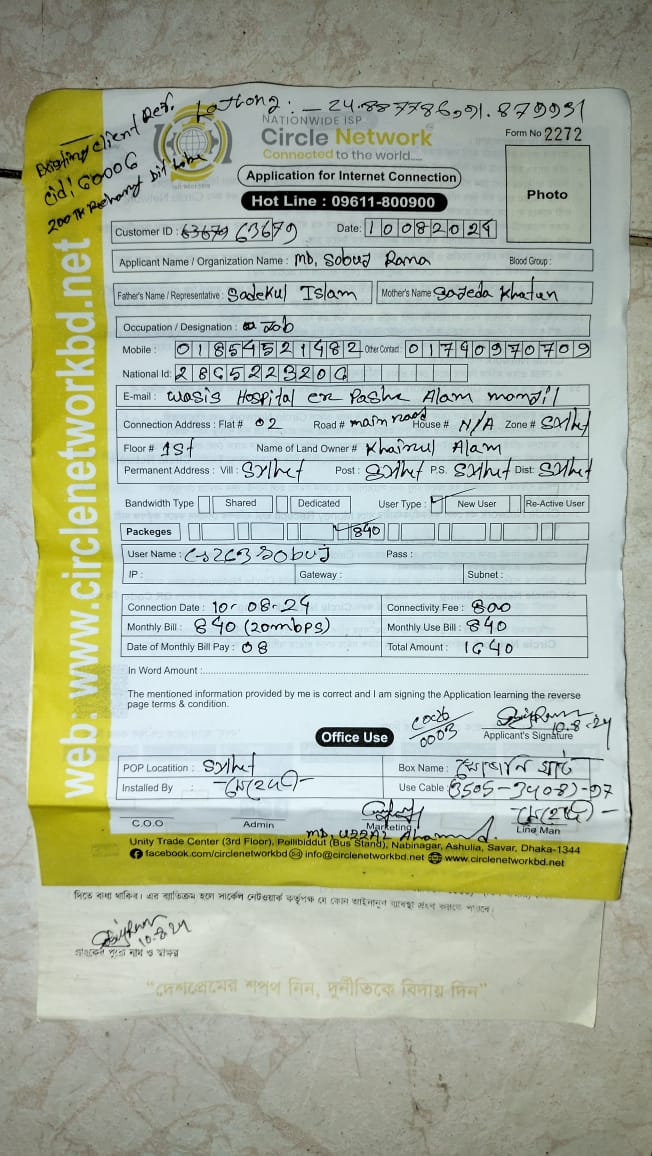 Existing Client Ref.
Cid: 60006
Latlong: - 24.887786, 91.879951
NATIONWIDE ISP
Circle Network
Connected to the world.....
Form No 2272
Application for Internet Connection
Hot Line : 09611-800900
Photo
web: www.circlenetworkbd.net
Customer ID : 63679 63679 Date: 10082024
Applicant Name / Organization Name : MD, Sobuj Rana Blood Group :
Father's Name / Representative : Sadekul Islam Mother's Name Sajeda Khatun
Occupation / Designation : Job
Mobile : 01854521482 Other Contact : 01740970709
National Id: 2865223206
E-mail : Wasis Hospital er Pashe Alam monjil
Connection Address : Flat # 02 Road # main road House # N/A Zone # Sylhet
Floor # 1st Name of Land Owner # Khairul Alam
Permanent Address : Vill : Sylhet Post : Sylhet P.S. Sylhet Dist: Sylhet
Bandwidth Type Shared Dedicated User Type : ✓ New User Re-Active User
Packeges ✓ 840
User Name : Pass :
IP : Gateway : Subnet :
Connection Date : 10-08-24 Connectivity Fee : 800
Monthly Bill : 840 (20mbps) Monthly Use Bill : 840
Date of Monthly Bill Pay : 08 Total Amount : 1640
In Word Amount :
The mentioned information provided by me is correct and I am signing the Application learning the reverse
page terms & condition.
10.8.24
Office Use
Applicant's Signature
POP Locatition : Sylhet Box Name :
Installed By : মেহেদী Use Cable :
মেহেদী
C.O.O Admin Marketing Line Man
Unity Trade Center (3rd Floor), Pollibiddut (Bus Stand), Nabinagar, Ashulia, Savar, Dhaka-1344
facebook.com/circlenetworkbd info@circlenetworkbd.net www.circlenetworkbd.net
দিতে বাধ্য থাকিব। এর ব্যতিক্রম হলে সার্কেল নেটওয়ার্ক কর্তৃপক্ষ যে কোন আইনানুগ ব্যবস্থা গ্রহণ করতে পারবে।
10.8.24
গ্রাহকের পুরো নাম ও স্বাক্ষর
“দেশপ্রেমের শপথ নিন, দুর্নীতিকে বিদায় দিন”